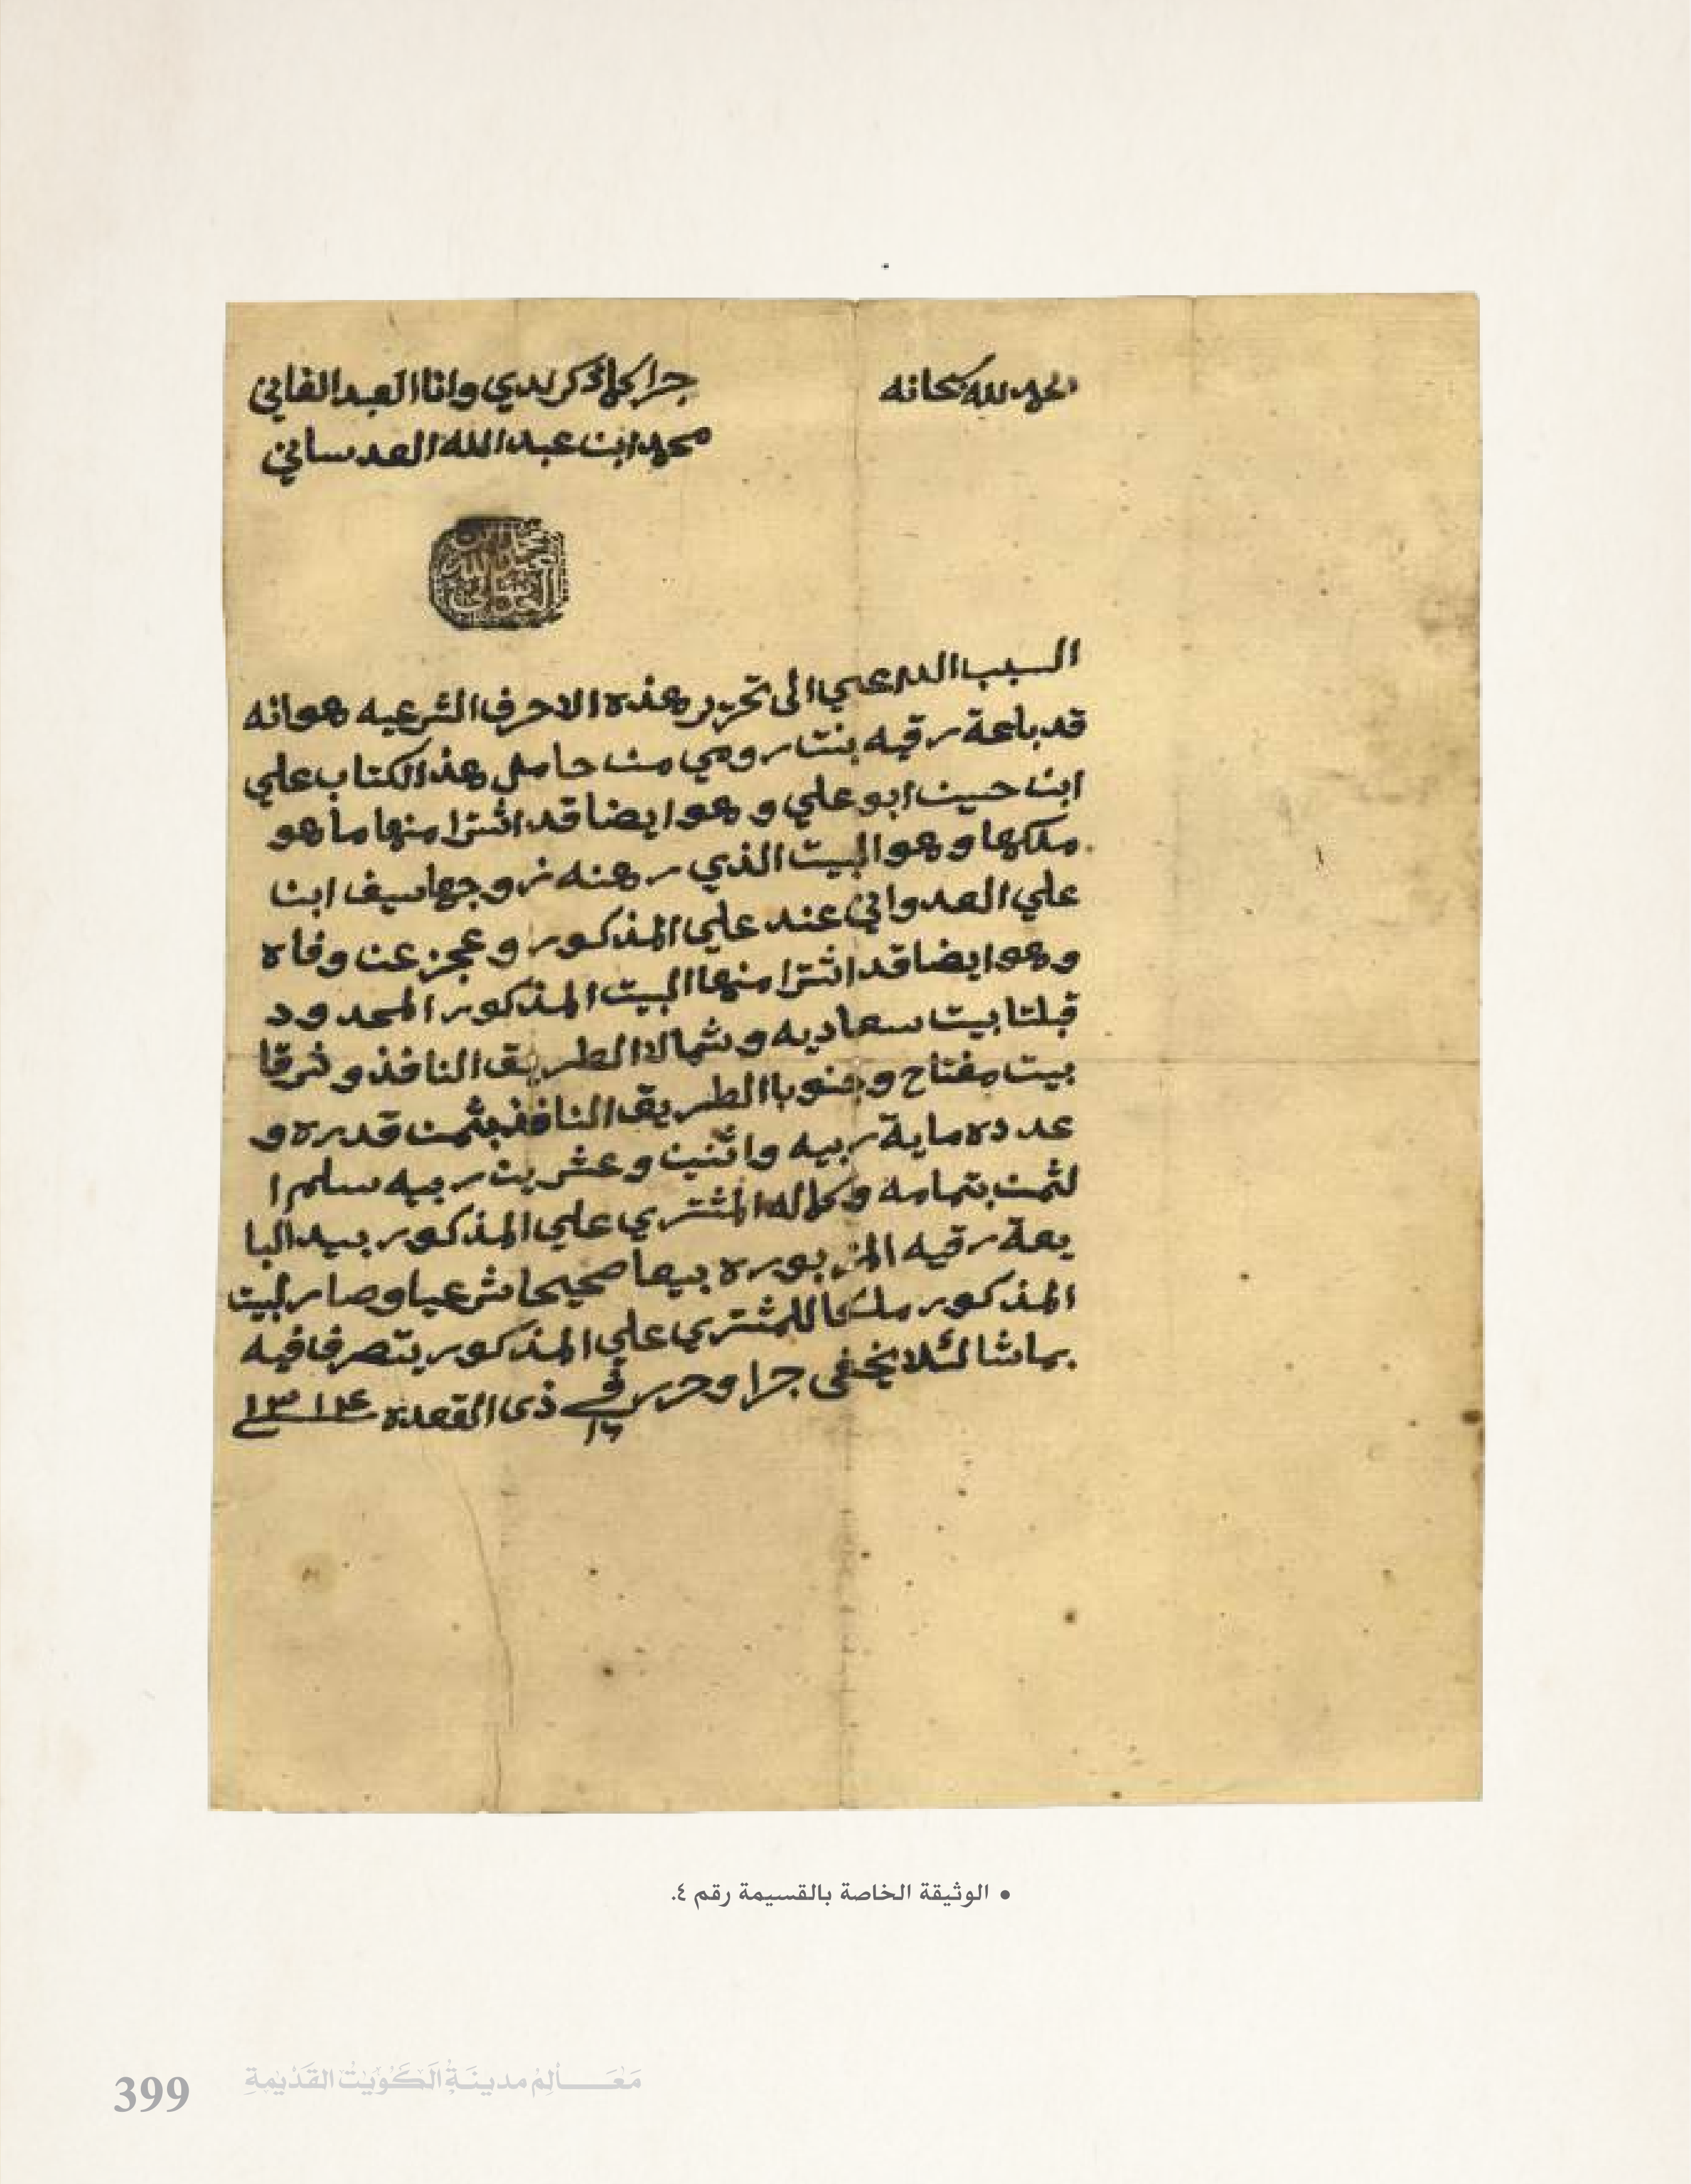 الحمد لله سبحانه
جرا كما ذكر لدي وانا العبد الفاني
محمد ابن عبد الله العدساني
السبب الداعي الى تحرير هذه الاحرف الشرعيه هو انه
قد باعة رقيه بنت رومي من حامل هذا الكتاب علي
ابن حسين ابو علي وهو ايضا قد اشترا منها ما هو
ملكها وهو البيت الذي رهنه زوجها سيف ابن
علي العدواني عند علي المذكور وعجز عن وفاه
وهو ايضا قد اشترا منها البيت المذكور المحدود
قبلتا بيت سعاديه وشمالا الطريق النافذ وشرقا
بيت مفتاح وجنوبا الطريق النافذ بثمن قدره و
عدده ماية ربيه واثنين وعشرين ربيه سلم ا
لثمن بتمامه وكماله المشتري علي المذكور بيد البا
يعة رقيه المزبوره بيعا صحيحا شرعيا وصار لبيت
المذكور ملكا للمشتري علي المذكور يتصرف فيه
بماشا لئلا يخفى جرا وحرر في ١٦ ذى القعدة ١٣١٤
• الوثيقة الخاصة بالقسيمة رقم ٤.
399 مَعَـــالِمْ مدينَةِ الكُوَيْتْ القَدْيمَةِ